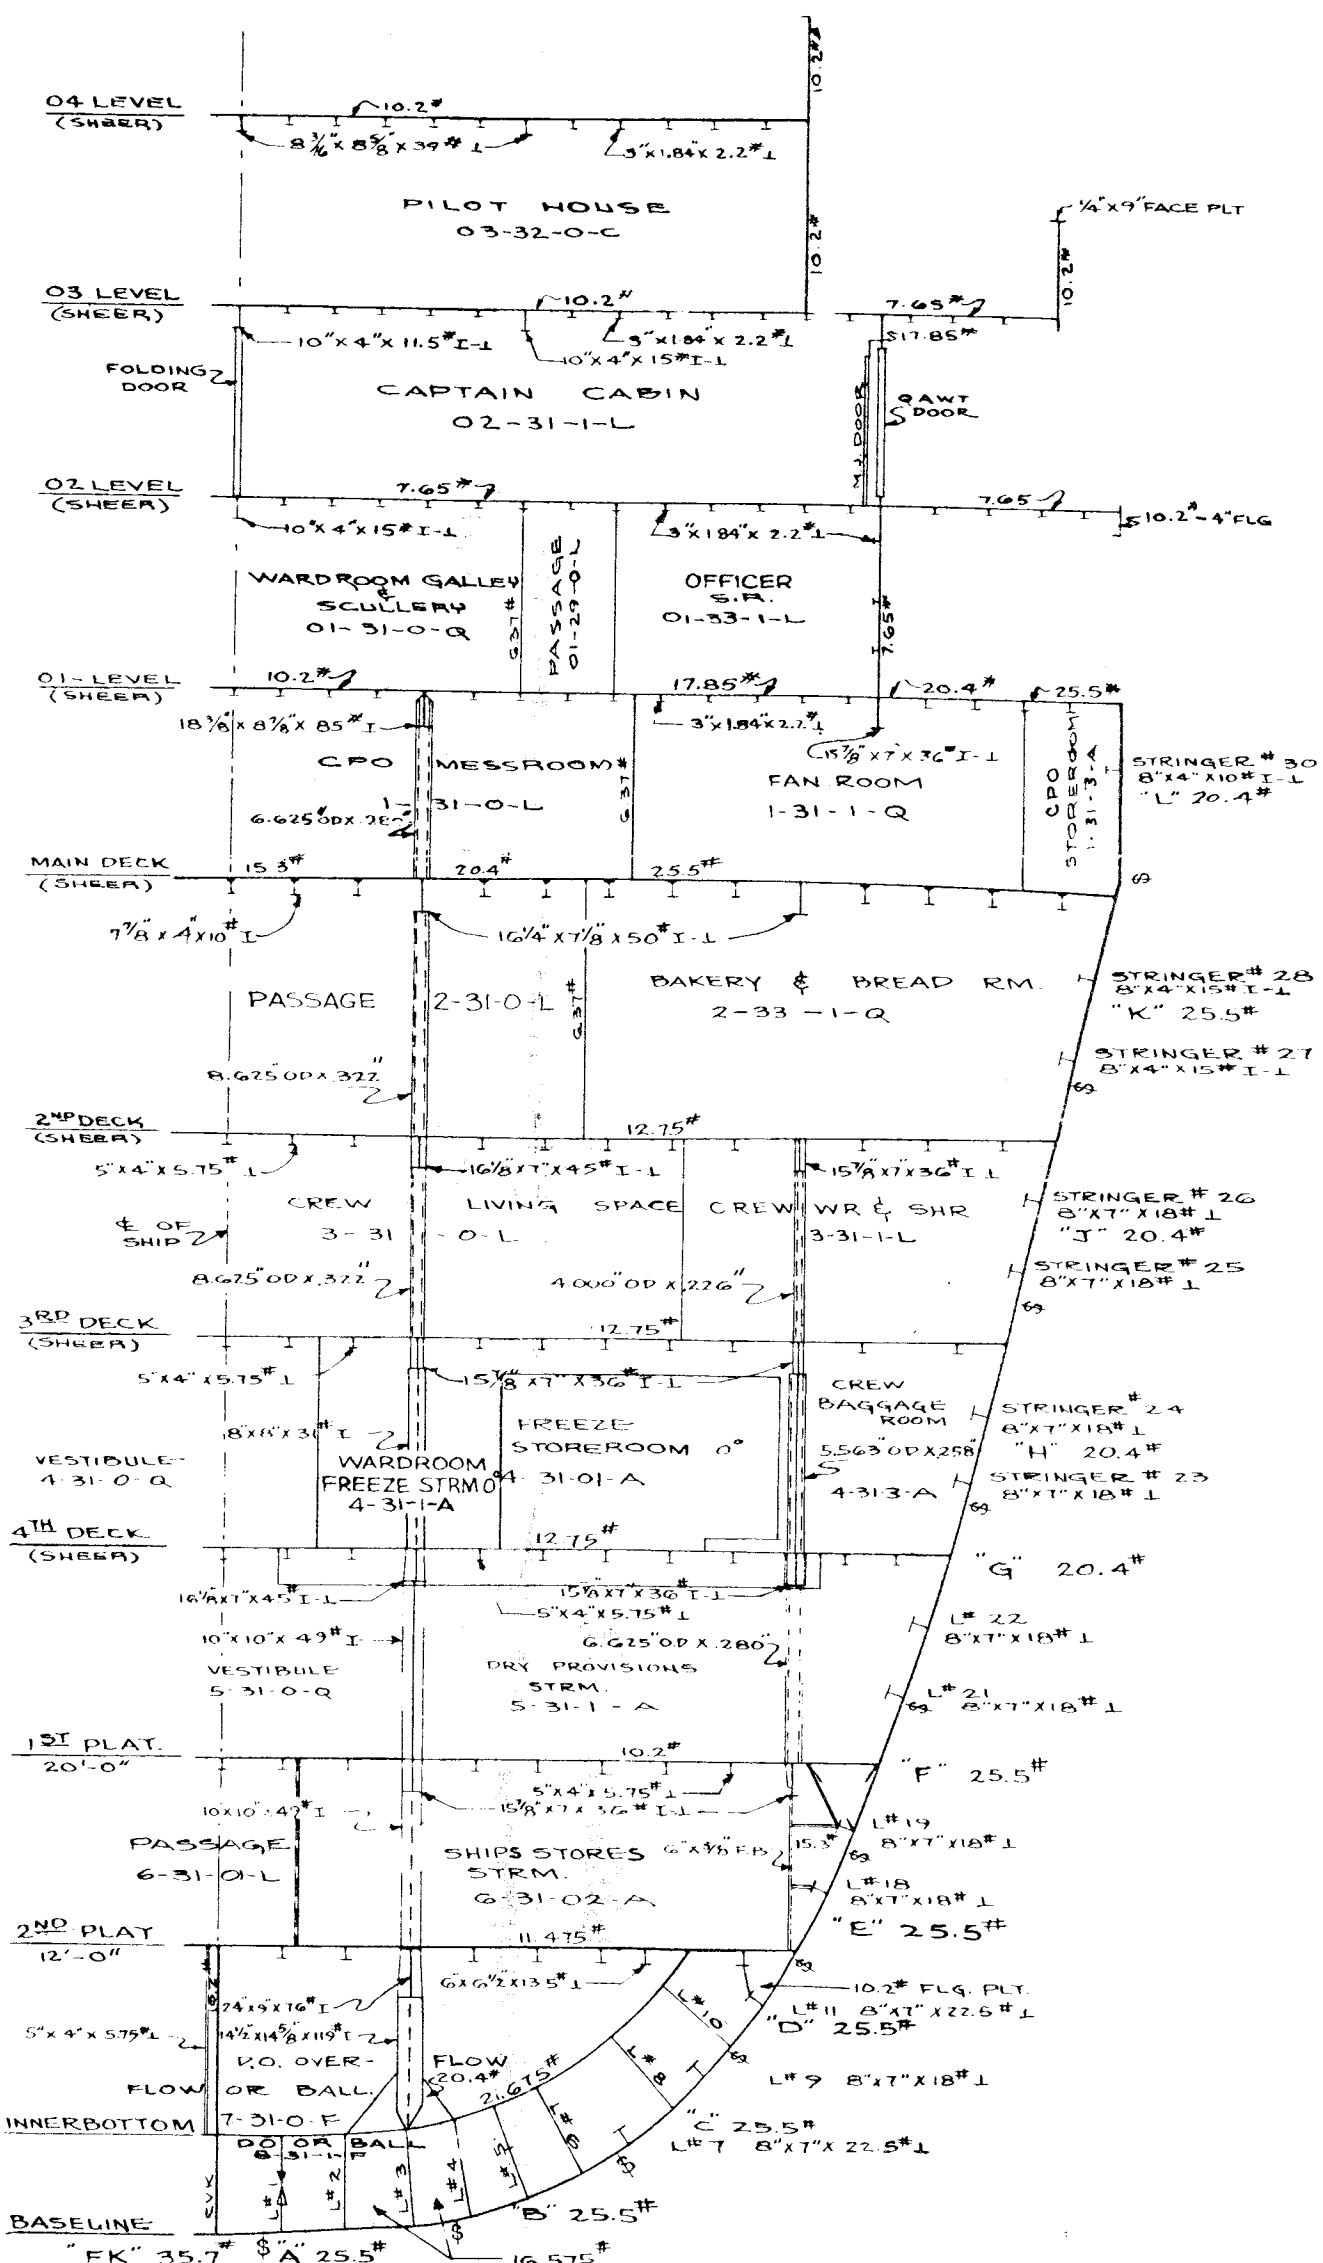 10.2#
04 LEVEL
(SHEER)
10.2#
8 3/16" x 8 5/8" x 39# ⊥
3"x1.84"x2.2#⊥
PILOT HOUSE
03-32-0-C
10.2#
1/4"x9" FACE PLT
10.2#
03 LEVEL
(SHEER)
10.2#
7.65#
10"x4"x11.5# I-⊥
3"x1.84"x2.2#⊥
10"x4"x15# I-⊥
17.85#
FOLDING
DOOR
CAPTAIN CABIN
02-31-1-L
DOOR
QAWT
DOOR
02 LEVEL
(SHEER)
7.65#
7.65
10"x4"x15# I-⊥
3"x1.84"x2.2#⊥
10.2#-4"FLG
WARDROOM GALLEY
&
SCULLERY
01-31-0-Q
6.37#
PASSAGE
01-29-0-L
OFFICER
S.R.
01-33-1-L
7.65#
01-LEVEL
(SHEER)
10.2#
17.85#
20.4#
25.5#
18 3/8" x 8 7/8" x 85# I
3"x1.84"x2.2#⊥
15 7/8"x7"x36# I-⊥
CPO MESSROOM
1-31-0-L
6.37#
FAN ROOM
1-31-1-Q
CPO
STOREROOM
1-31-3-A
STRINGER # 30
8"x4"x10# I-⊥
"L" 20.4#
6.625"OD x .28
MAIN DECK
(SHEER)
15.3#
20.4#
25.5#
7 7/8" x 4" x 10# I
16 1/4" x 7 1/8" x 50# I-⊥
PASSAGE 2-31-0-L
6.37#
BAKERY & BREAD RM.
2-33-1-Q
STRINGER # 28
8"x4"x15# I-⊥
"K" 25.5#
STRINGER # 27
8"x4"x15# I-⊥
8.625"OD x .322"
2ND DECK
(SHEER)
12.75#
5"x4"x5.75#⊥
16 1/8"x7"x45# I-⊥
15 7/8"x7"x36# I-⊥
CREW LIVING SPACE
3-31-0-L
CREW WR & SHR
3-31-1-L
℄ OF
SHIP
STRINGER # 26
8"x7"x18#⊥
"J" 20.4#
STRINGER # 25
8"x7"x18#⊥
8.625"OD x .322"
4.000"OD x .226"
3RD DECK
(SHEER)
12.75#
5"x4"x5.75#⊥
15 7/8"x7"x36# I-⊥
8"x8"x31# I
VESTIBULE
4-31-0-Q
WARDROOM
FREEZE STRM 0°
4-31-1-A
FREEZE
STOREROOM 0°
4-31-01-A
CREW
BAGGAGE
ROOM
5.563"OD x .258"
4-31-3-A
STRINGER # 24
8"x7"x18#⊥
"H" 20.4#
STRINGER # 23
8"x7"x18#⊥
4TH DECK
(SHEER)
12.75#
"G" 20.4#
16 1/8"x7"x45# I-⊥
15 7/8"x7"x36# I-⊥
5"x4"x5.75#⊥
10"x10"x49# I
6.625"OD x .280"
VESTIBULE
5-31-0-Q
DRY PROVISIONS
STRM.
5-31-1-A
L# 22
8"x7"x18#⊥
L# 21
8"x7"x18#⊥
1ST PLAT.
20'-0"
10.2#
"F" 25.5#
5"x4"x5.75#⊥
10x10"x49# I
15 7/8"x7"x36# I-⊥
PASSAGE
6-31-01-L
SHIPS STORES
STRM.
6-31-02-A
15.3#
L#19
8"x7"x18#⊥
L#18
8"x7"x18#⊥
"E" 25.5#
2ND PLAT
12'-0"
11.475#
6x6 1/2x13.5#⊥
24"x9"x76# I
10.2# FLG. PLT.
L#11 8"x7"x22.5#⊥
"D" 25.5#
5"x4"x5.75#⊥
14 1/2"x14 5/8"x119# I
D.O. OVER-
FLOW OR BALL.
7-31-0-F
FLOW
20.4#
21.675#
L#10
L#8
L# 9 8"x7"x18#⊥
"C" 25.5#
L#7 8"x7"x22.5#⊥
L#6
INNERBOTTOM
DO OR BALL
8-31-1-F
CVK
L#1
L#2
L#3
L#4
L#5
"B" 25.5#
BASELINE
"FK" 35.7#
"A" 25.5#
16.575#